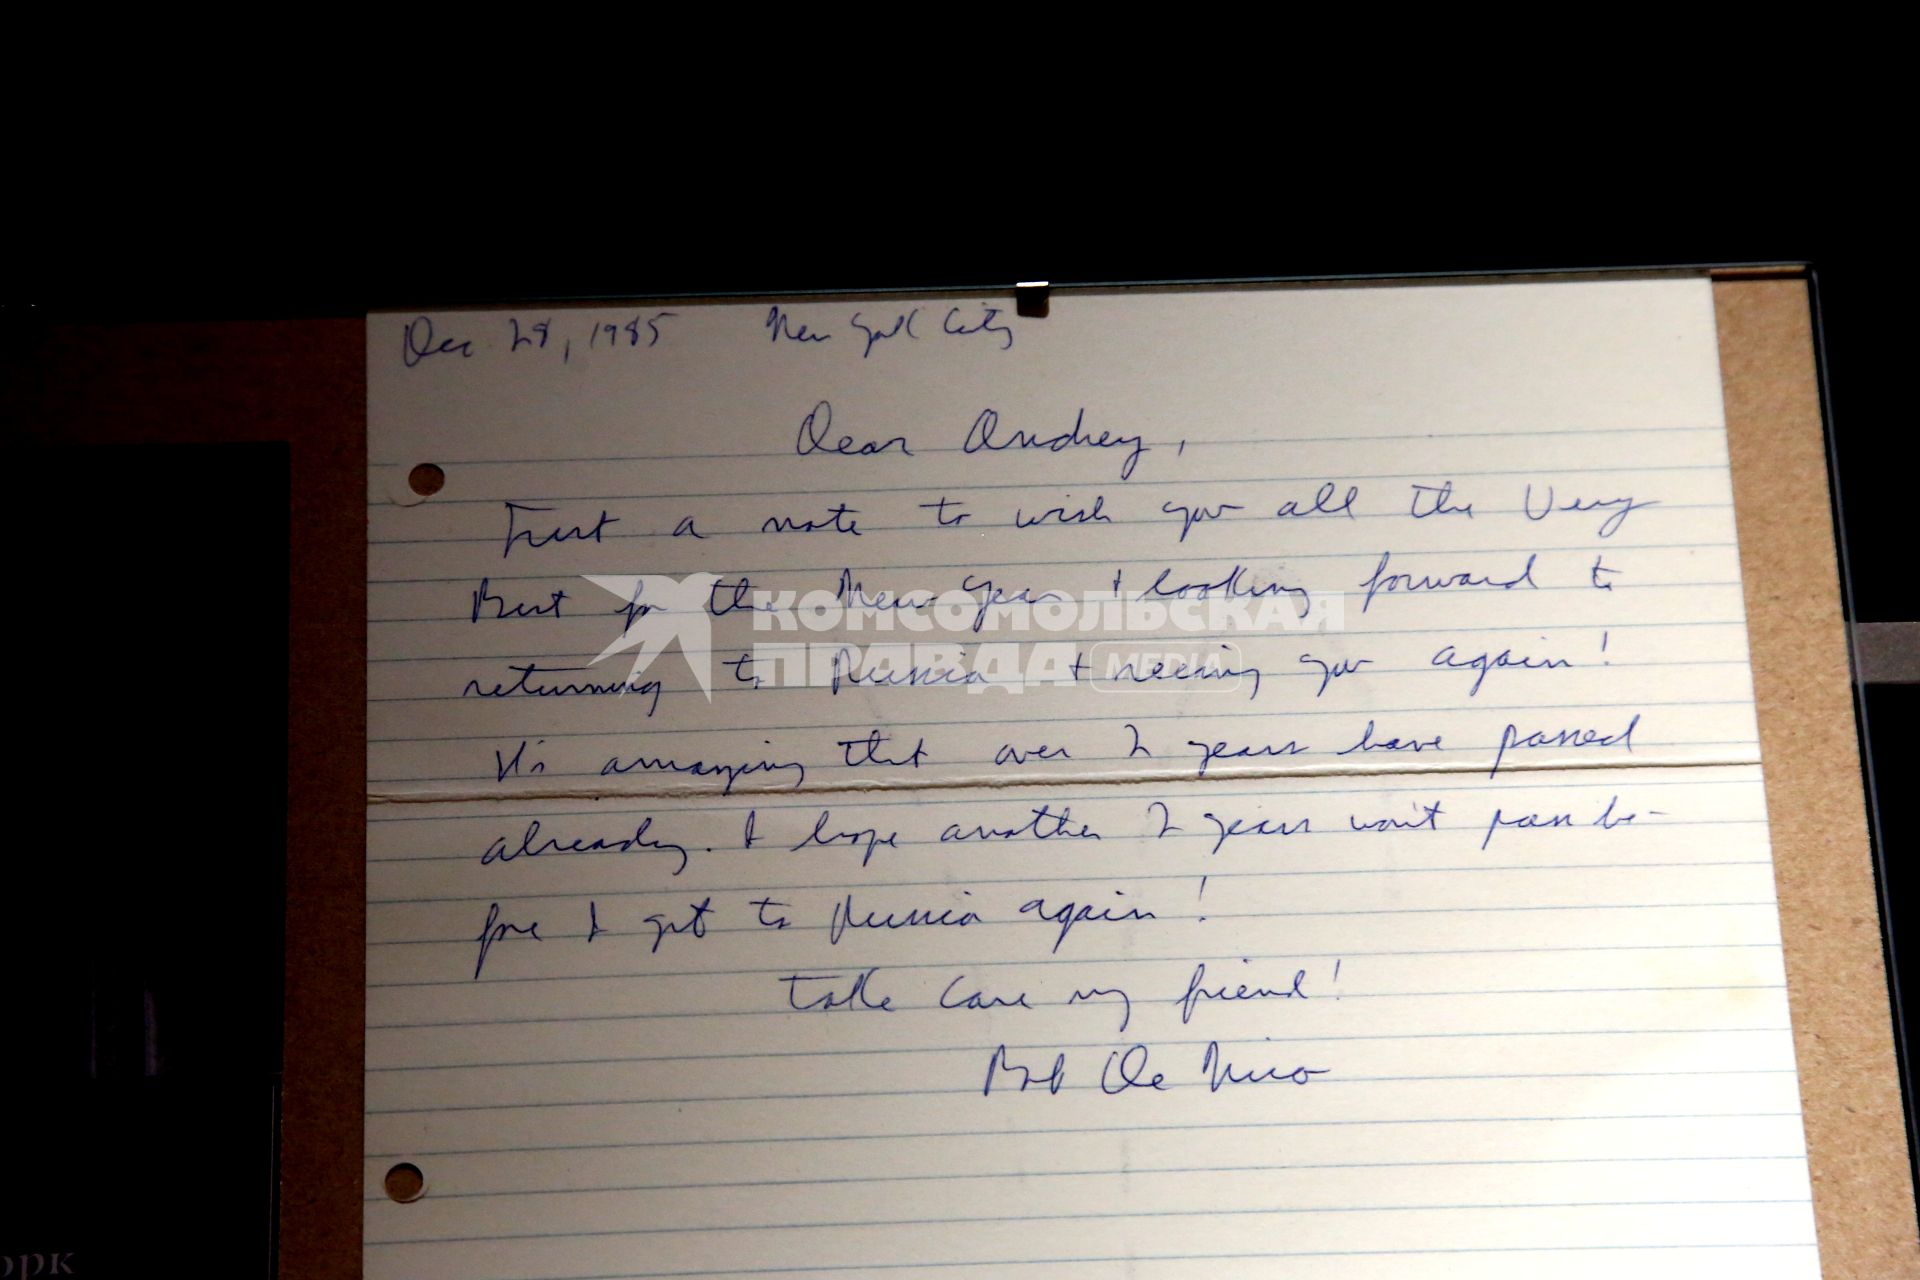 Dec 28, 1985 New York City
Dear Andrey,
Just a note to wish you all the Very
Best for the New Year + looking forward to
returning to Russia + seeing you again!
It's amazing that over 2 years have passed
already. I hope another 2 years won't pass be-
fore I get to Russia again!
Take care my friend!
Bob De Niro
КОМСОМОЛЬСКАЯ
ПРАВДА MEDIA
орк